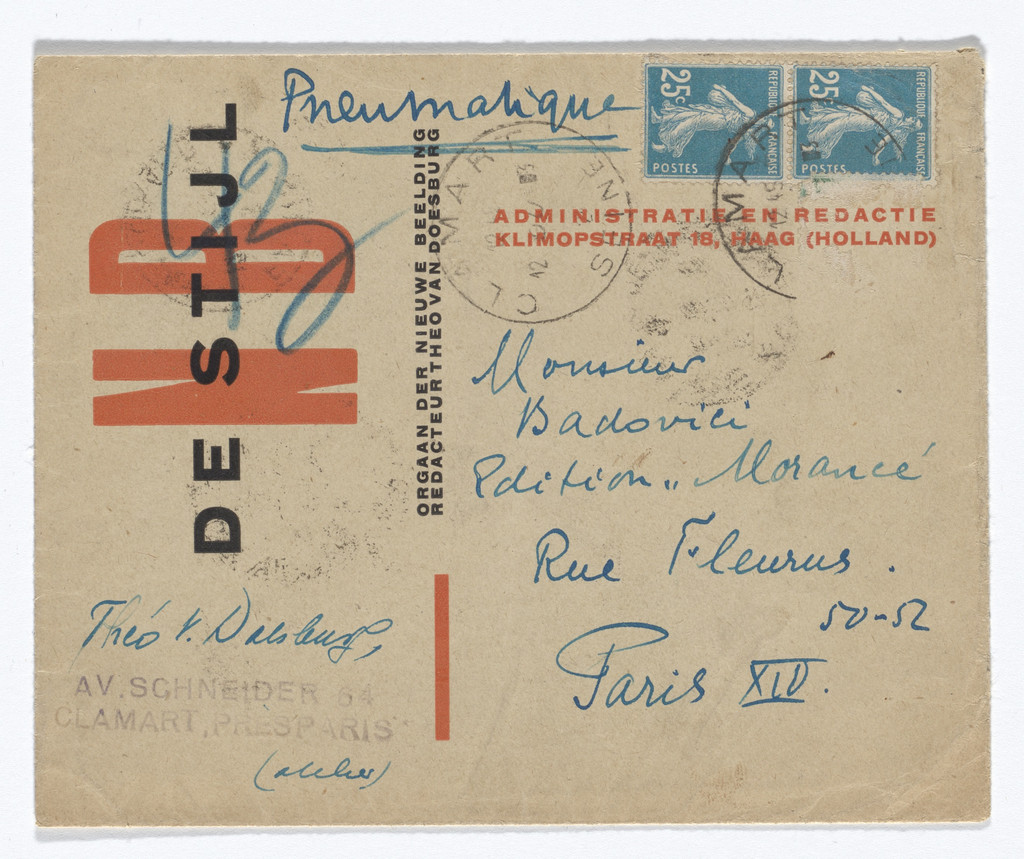 Pneumatique
25c
REPUBLIQUE FRANÇAISE
POSTES
25
REPUBLIQUE FRANÇAISE
POSTES
CLAMART
SEINE
12
CLAMART
12
ADMINISTRATIE EN REDACTIE
KLIMOPSTRAAT 18, HAAG (HOLLAND)
NB
DE STIJL
ORGAAN DER NIEUWE BEELDING
REDACTEUR THEO VAN DOESBURG
Monsieur
Badovici
Edition „ Morancé
Rue Fleurus.
50-52
Paris XIV.
Théo v. Doesburg,
AV. SCHNEIDER 64
CLAMART, PRES PARIS
(atelier)